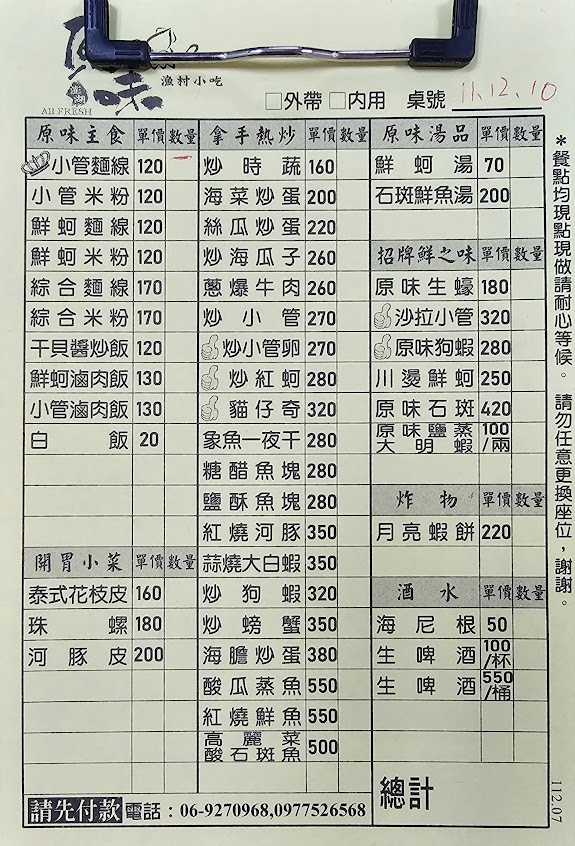 原味
漁村小吃
All FRESH
□外帶 □內用 桌號 11.12.10
原味主食 單價 數量
小管麵線 120
小管米粉 120
鮮蚵麵線 120
鮮蚵米粉 120
綜合麵線 170
綜合米粉 170
干貝醬炒飯 120
鮮蚵滷肉飯 130
小管滷肉飯 130
白飯 20
開胃小菜 單價 數量
泰式花枝皮 160
珠螺 180
河豚皮 200
拿手熱炒 單價 數量
炒時蔬 160
海菜炒蛋 200
絲瓜炒蛋 220
炒海瓜子 260
蔥爆牛肉 260
炒小管 270
炒小管卵 270
炒紅蚵 280
貓仔奇 320
象魚一夜干 280
糖醋魚塊 280
鹽酥魚塊 280
紅燒河豚 350
蒜燒大白蝦 350
炒狗蝦 320
炒螃蟹 350
海膽炒蛋 380
酸瓜蒸魚 550
紅燒鮮魚 550
高麗菜
酸石斑魚 500
原味湯品 單價 數量
鮮蚵湯 70
石斑鮮魚湯 200
招牌鮮之味 單價 數量
原味生蠔 180
沙拉小管 320
原味狗蝦 280
川燙鮮蚵 250
原味石斑 420
原味鹽蒸
大明蝦 100/兩
炸物 單價 數量
月亮蝦餅 220
酒水 單價 數量
海尼根 50
生啤酒 100/杯
生啤酒 550/桶
總計
請先付款 電話：06-9270968,0977526568
＊餐點均現點現做請耐心等候。請勿任意更換座位，謝謝。
112.07